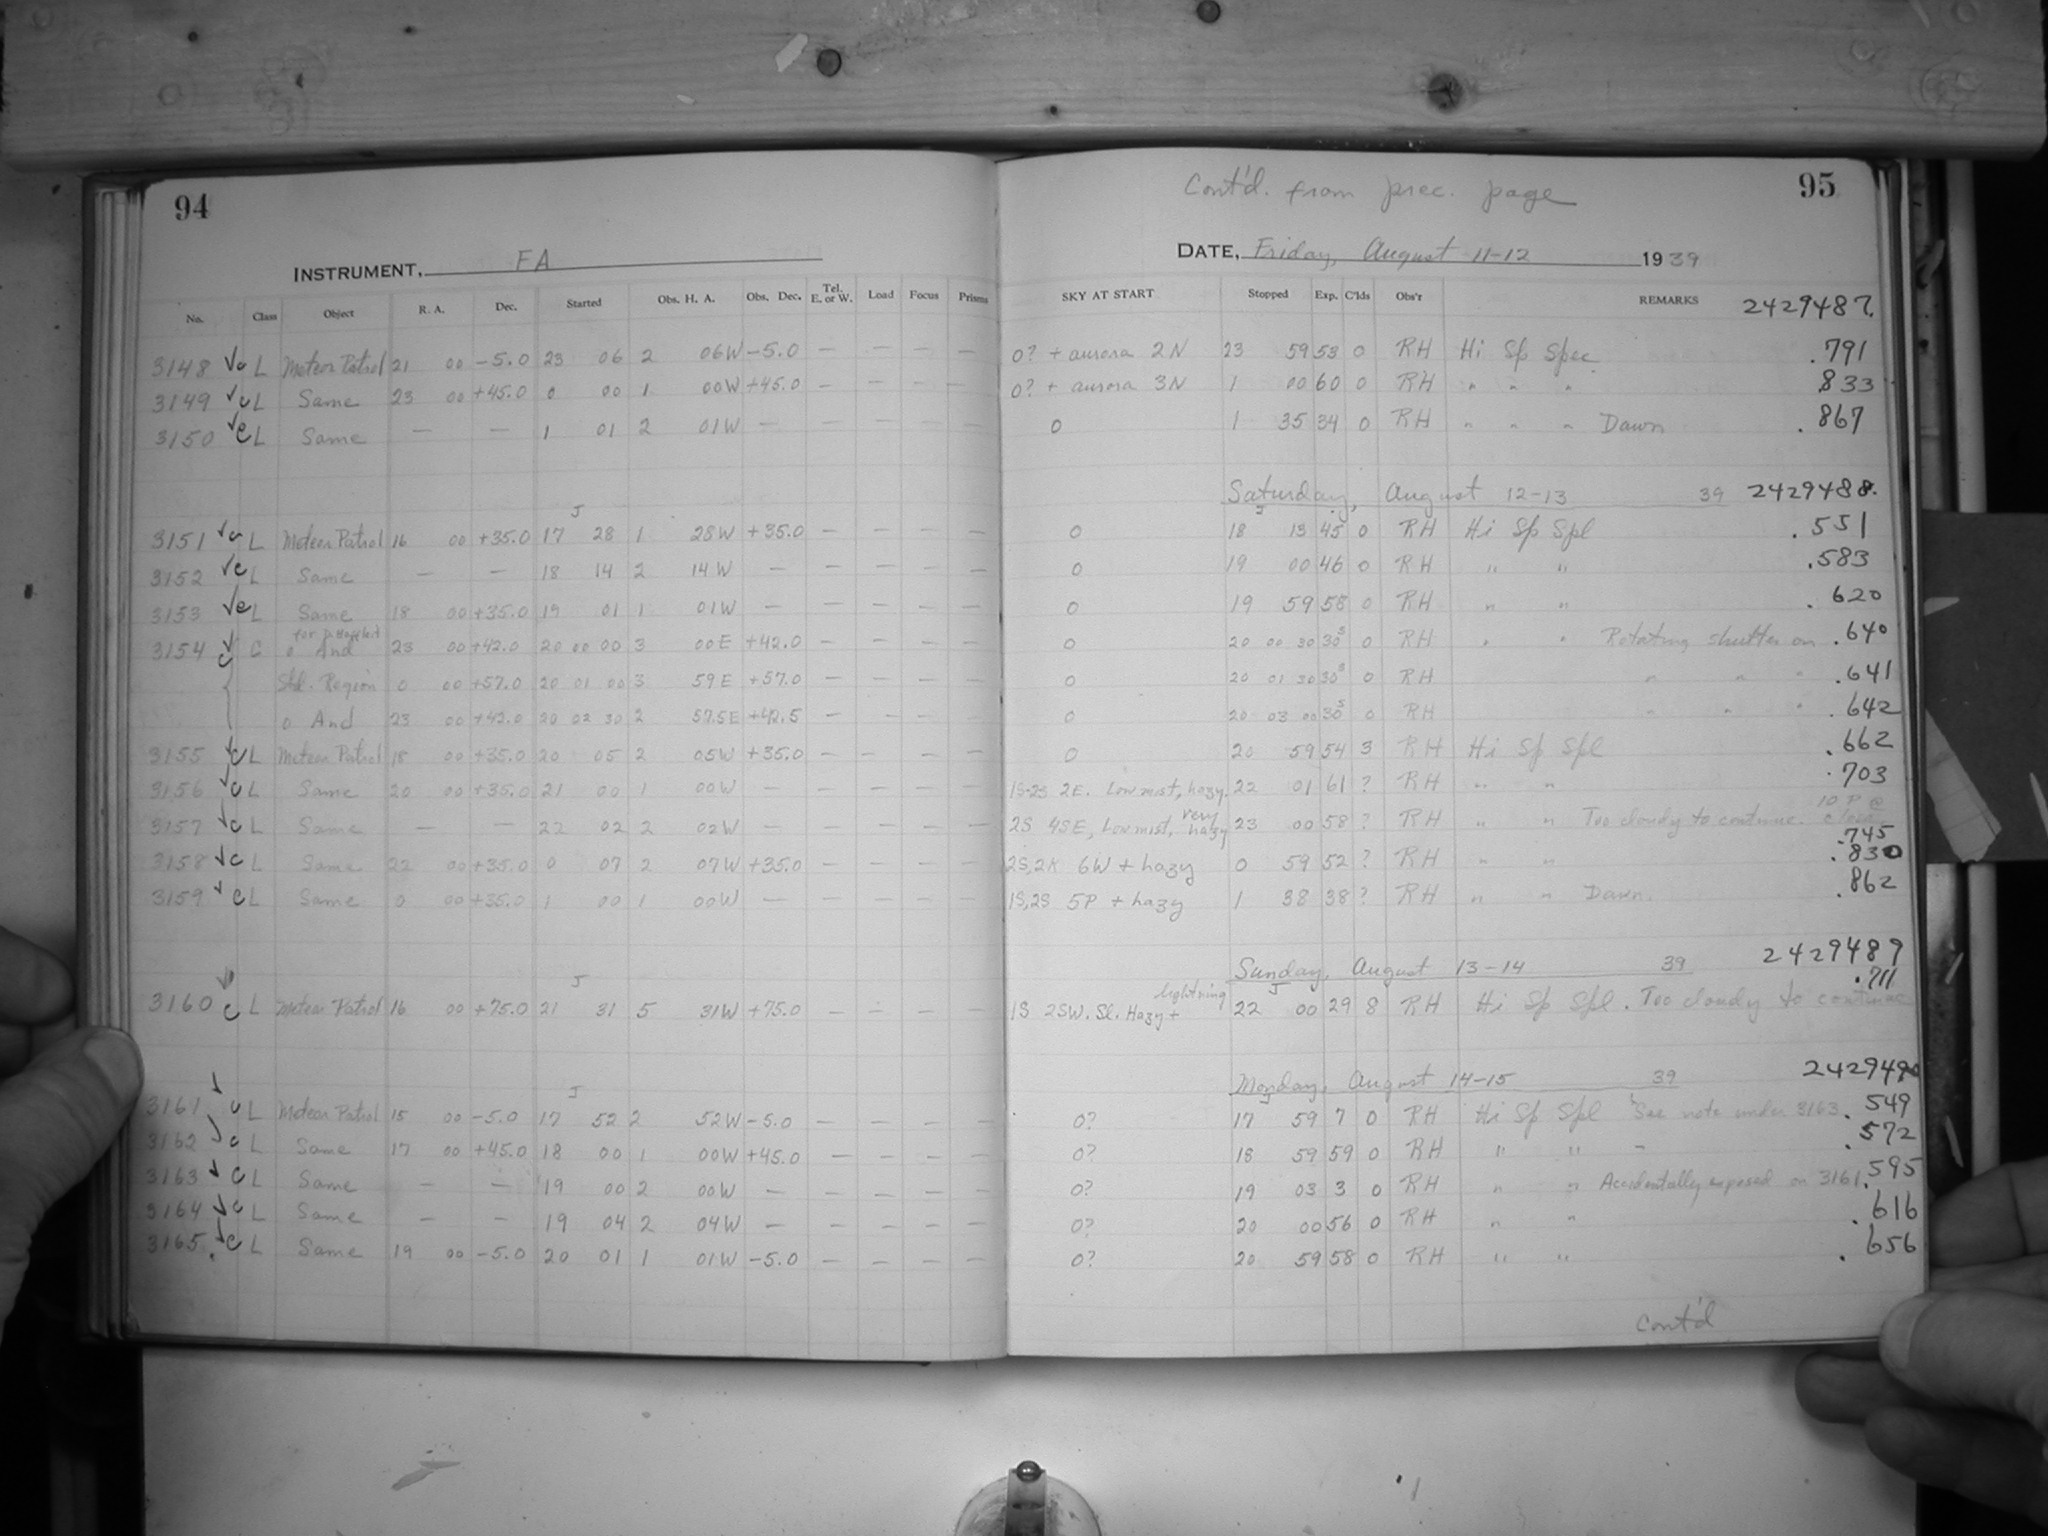 94
INSTRUMENT, FA
No. Class Object R. A. Dec. Started Obs. H. A. Obs. Dec. Tel. E. or W. Load Focus Prisms
3148 √c L Meteor Patrol 21 00 -5.0 23 06 2 06W -5.0 — — — —
3149 √c L Same 23 00 +45.0 0 00 1 00W +45.0 — — — —
3150 √c L Same — — 1 01 2 01W — — — — —
J
3151 √c L Meteor Patrol 16 00 +35.0 17 28 1 28W +35.0 — — — —
3152 √c L Same — — 18 14 2 14W — — — — —
3153 √c L Same 18 00 +35.0 19 01 1 01W — — — — —
3154 √c C o And 23 00 +42.0 20 00 00 3 00E +42.0 — — — —
Std. Region 0 00 +57.0 20 01 00 3 59E +57.0 — — — —
o And 23 00 +42.0 20 02 30 2 57.5E +42.5 — — — —
3155 √c L Meteor Patrol 18 00 +35.0 20 05 2 05W +35.0 — — — —
3156 √c L Same 20 00 +35.0 21 00 1 00W — — — — —
3157 √c L Same — — 22 02 2 02W — — — — —
3158 √c L Same 22 00 +35.0 0 07 2 07W +35.0 — — — —
3159 √c L Same 0 00 +35.0 1 00 1 00W — — — — —
J
3160 √c L Meteor Patrol 16 00 +75.0 21 31 5 31W +75.0 — — — —
J
3161 √c L Meteor Patrol 15 00 -5.0 17 52 2 52W -5.0 — — — —
3162 √c L Same 17 00 +45.0 18 00 1 00W +45.0 — — — —
3163 √c L Same — — 19 00 2 00W — — — — —
3164 √c L Same — — 19 04 2 04W — — — — —
3165 √c L Same 19 00 -5.0 20 01 1 01W -5.0 — — — —
Cont'd. from prec. page 95
DATE, Friday, August 11-12 1939
SKY AT START Stopped Exp. C'lds Obs'r REMARKS 2429487.
0? + aurora 2N 23 59 53 0 RH Hi Sp Spec .791
0? + aurora 3N 1 00 60 0 RH " " " .833
0 1 35 34 0 RH " " " Dawn .867
Saturday, August 12-13 39 2429488.
J
0 18 13 45 0 RH Hi Sp Spl .551
0 19 00 46 0 RH " " .583
0 19 59 58 0 RH " " .620
0 20 00 30 30s 0 RH " " Rotating shutter on .640
0 20 01 30 30s 0 RH " " " .641
0 20 03 00 30s 0 RH " " " .642
0 20 59 54 3 RH Hi Sp Spl .662
1S-2S 2E. Low mist, hazy. 22 01 61 ? RH " " .703
2S 4SE, Low mist, very hazy 23 00 58 ? RH " " Too cloudy to continue. 10 P @ close. .745
2S,2K 6W + hazy 0 59 52 ? RH " " .830
1S,2S 5P + hazy 1 38 38 ? RH " " Dawn. .862
Sunday, August 13-14 39 2429489
J
1S 2SW. Sl. Hazy + lightning 22 00 29 8 RH Hi Sp Spl. Too cloudy to continue .711
Monday, August 14-15 39 2429490
J
0? 17 59 7 0 RH Hi Sp Spl See note under 3163. .549
0? 18 59 59 0 RH " " .572
0? 19 03 3 0 RH " " Accidentally exposed on 3161 .595
0? 20 00 56 0 RH " " .616
0? 20 59 58 0 RH " " .656
Cont'd